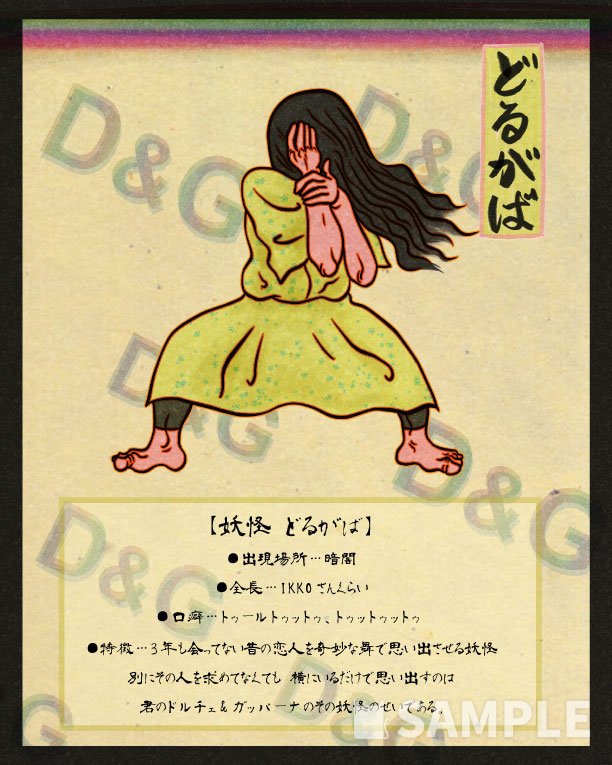 どるがば
D&G
D&G
D&G
D&G
D&G
【妖怪 どるがば】
●出現場所…暗闇
●全長…IKKOさんくらい
●口癖…トゥールトゥットゥ、トゥットゥットゥ
●特徴…3年も会ってない昔の恋人を奇妙な舞で思い出させる妖怪
別にその人を求めてなんても 横にいるだけで思い出すのは
君のドルチェ&ガッバーナのその妖怪のせいである。
SAMPLE